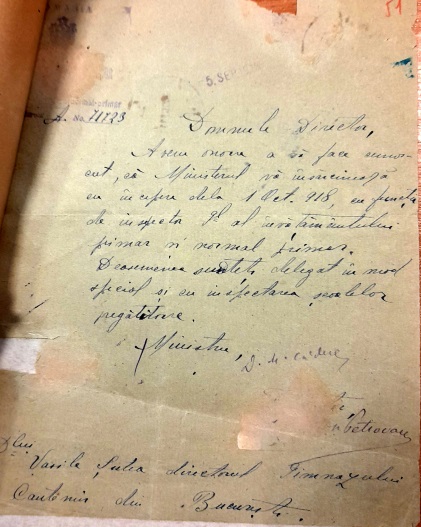 51
5. SEP
A. No. 71723
Domnule Director,
Avem onoare a vă face cunos-
cut, că Ministerul vă însărcinează
cu începere dela 1 Oct. 918, cu funcția
de inspector al învățământului
primar și normal primar.
Deasemenea sunteți delegat în mod
special și cu inspectarea școalelor
pregătitoare.
Ministru,
Petrovan
Dlui
Vasile directorul Gimnazului
Cantemir din București.